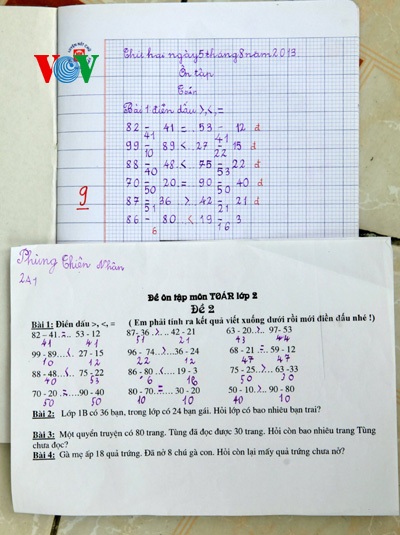 VOV
Thứ hai ngày 5 tháng 8 năm 2013
Ôn tập
Toán
Bài 1 điền dấu >,<,=
82 - 41 = 53 - 12 đ
41 41
99 - 89 < 27 - 15 đ
10 22
88 - 48 < 75 - 22 đ
40 53
70 - 20 = 90 - 40 đ
50 50
87 - 36 > 42 - 21 đ
51 21
86 - 80 < 19 - 3
6 16
9
Phùng Thiên Nhân
2A1
Đề ôn tập môn TOÁN lớp 2
Đề 2
Bài 1: Điền dấu >, <, = ( Em phải tính ra kết quả viết xuống dưới rồi mới điền dấu nhé !)
82 – 41 ..=.. 53 - 12 87- 36 ..>.. 42 - 21 63 - 20 ..>.. 97- 53
41 41 51 21 43 44
99 - 89 ..<.. 27 - 15 96 - 74 ..>.. 36 - 24 68 - 21 ..=.. 59 - 12
10 12 22 12 47 47
88 - 48 ..<.. 75 - 22 86 - 80 ..<.. 19 - 3 75 - 25 ..>.. 63 -33
40 53 6 16 50
70 - 20 ..=.. 90 - 40 80 - 70 ..=.. 30 - 20 50 - 10 ..>.. 90 - 80
50 50 10 10 40 10
Bài 2: Lớp 1B có 36 bạn, trong lớp có 24 bạn gái. Hỏi lớp có bao nhiêu bạn trai?
Bài 3: Một quyển truyện có 80 trang. Tùng đã đọc được 30 trang. Hỏi còn bao nhiêu trang Tùng
chưa đọc?
Bài 4: Gà mẹ ấp 18 quả trứng. Đã nở 8 chú gà con. Hỏi còn lại mấy quả trứng chưa nở?